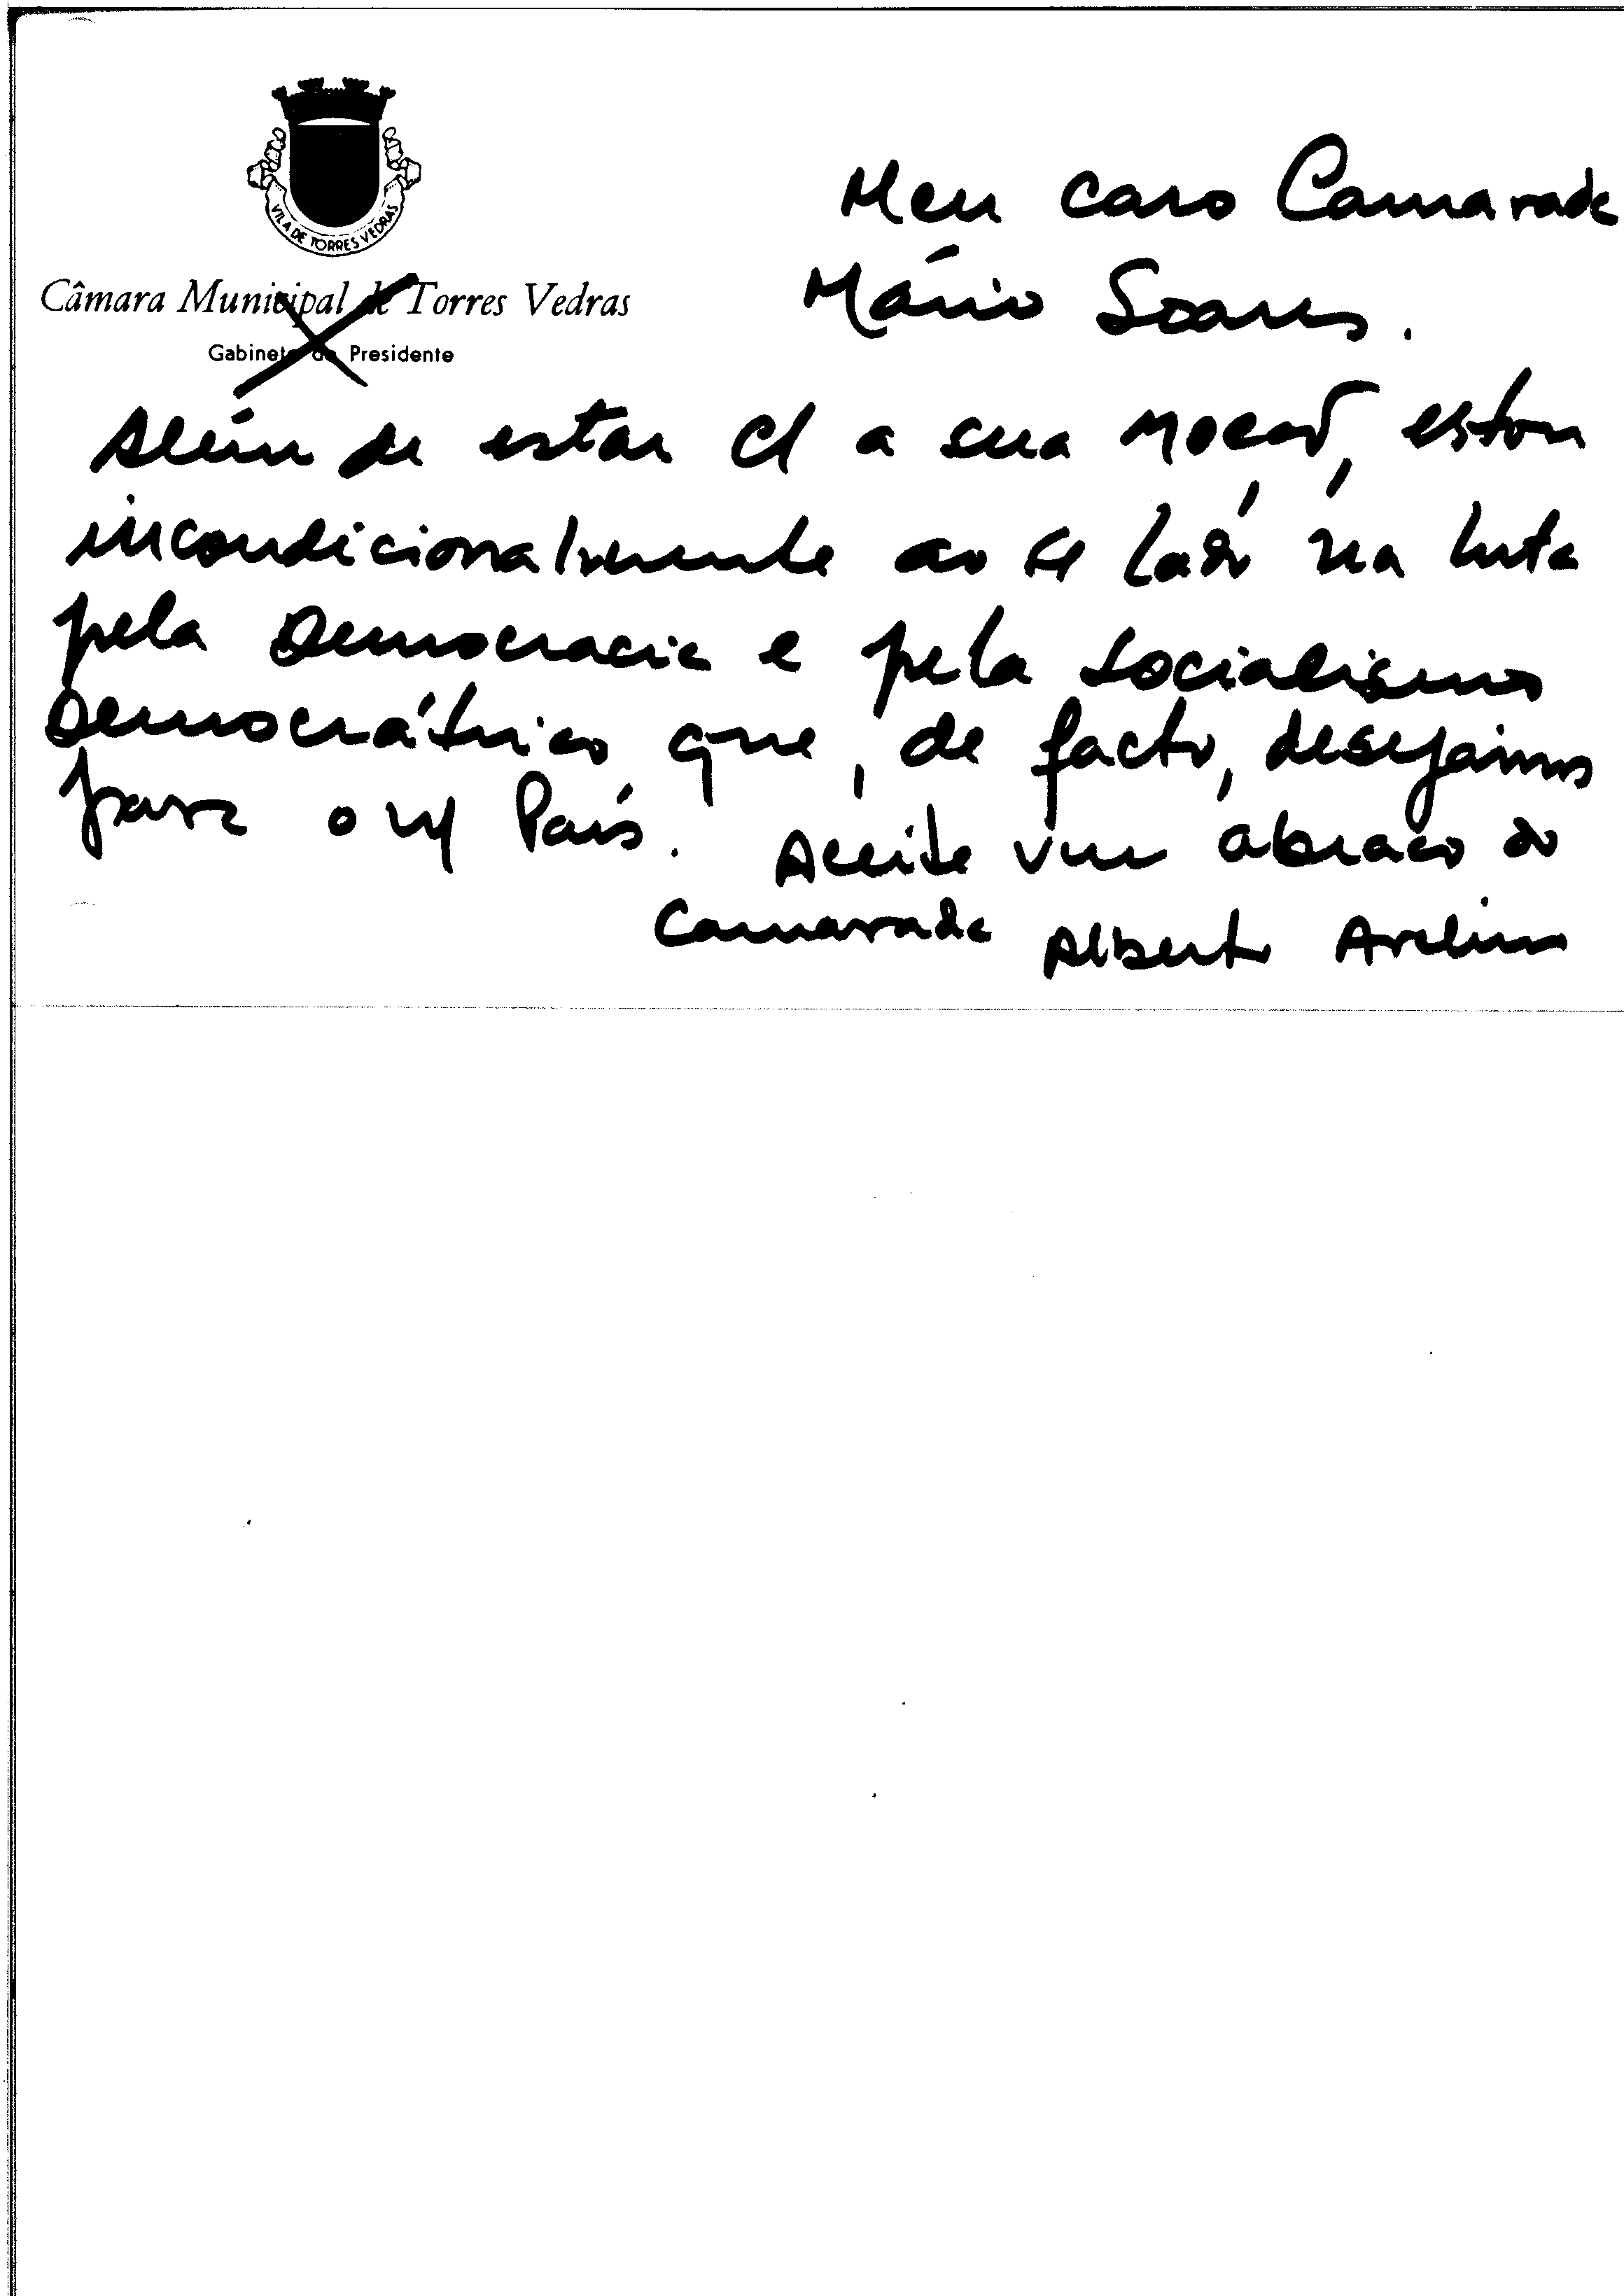 VILA DE TORRES VEDRAS
Câmara Municipal de Torres Vedras
Gabinete do Presidente
Meu caro Camarada
Mário Soares.
Além de estar c/ a sua moção, estou
incondicionalmente ao s/ lado na luta
pela Democracia e pela Socialismo
Democrático que, de facto, desejamos
para o n/ País. Aceite um abraço do
Camarada Alberto Avelino